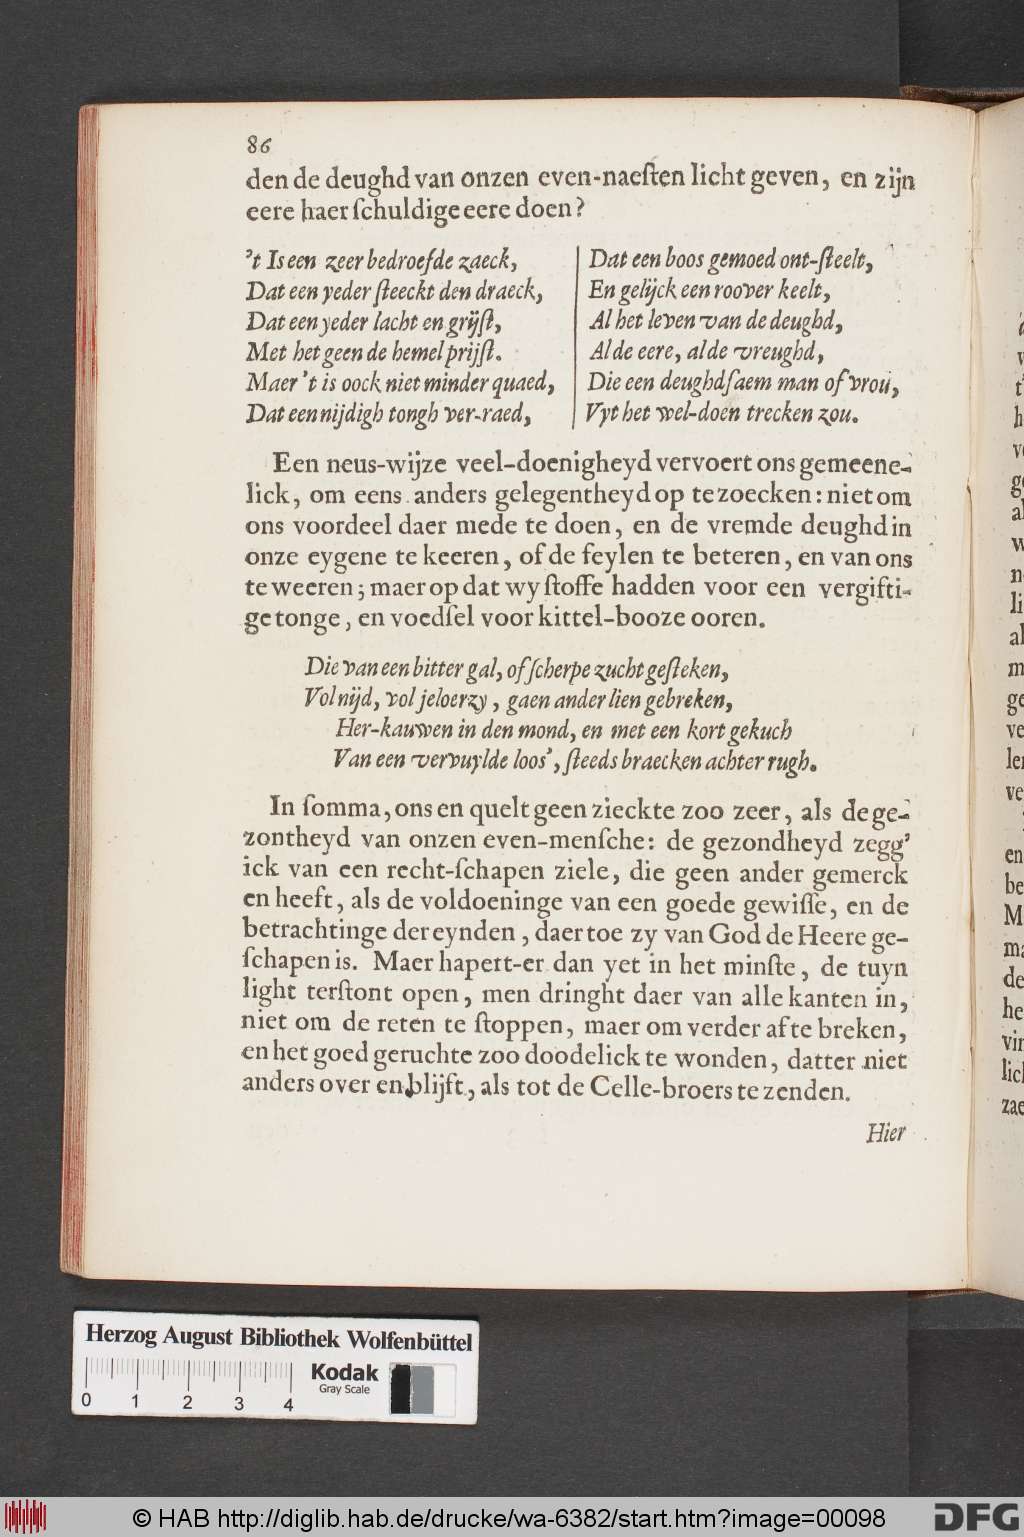 86
den de deughd van onzen even-naeſten licht geven, en zijn
eere haer ſchuldige eere doen?
't Is een zeer bedroefde zaeck,
Dat een yeder ſteeckt den draeck,
Dat een yeder lacht en grijſt,
Met het geen de hemel prijſt.
Maer 't is oock niet minder quaed,
Dat een nijdigh tongh ver-raed,
Dat een boos gemoed ont-ſteelt,
En gelijck een roover keelt,
Al het leven van de deughd,
Al de eere, al de vreughd,
Die een deughdſaem man of vrou,
Vyt het wel-doen trecken zou.
Een neus-wijze veel-doenigheyd vervoert ons gemeene-
lick, om eens anders gelegentheyd op te zoecken: niet om
ons voordeel daer mede te doen, en de vremde deughd in
onze eygene te keeren, of de feylen te beteren, en van ons
te weeren; maer op dat wy ſtoffe hadden voor een vergifti-
ge tonge, en voedſel voor kittel-booze ooren.
Die van een bitter gal, of ſcherpe zucht geſteken,
Vol nijd, vol jeloerzy, gaen ander lien gebreken,
Her-kauwen in den mond, en met een kort gekuch
Van een vervuylde loos', ſteeds braecken achter rugh.
In ſomma, ons en quelt geen zieckte zoo zeer, als de ge-
zontheyd van onzen even-menſche: de gezondheyd zegg'
ick van een recht-ſchapen ziele, die geen ander gemerck
en heeft, als de voldoeninge van een goede gewiſſe, en de
betrachtinge der eynden, daer toe zy van God de Heere ge-
ſchapen is. Maer hapert-er dan yet in het minſte, de tuyn
light terſtont open, men dringht daer van alle kanten in,
niet om de reten te ſtoppen, maer om verder af te breken,
en het goed geruchte zoo doodelick te wonden, datter niet
anders over en blijft, als tot de Celle-broers te zenden.
Hier
Herzog August Bibliothek Wolfenbüttel
Kodak
Gray Scale
0 1 2 3 4
© HAB http://diglib.hab.de/drucke/wa-6382/start.htm?image=00098
DFG